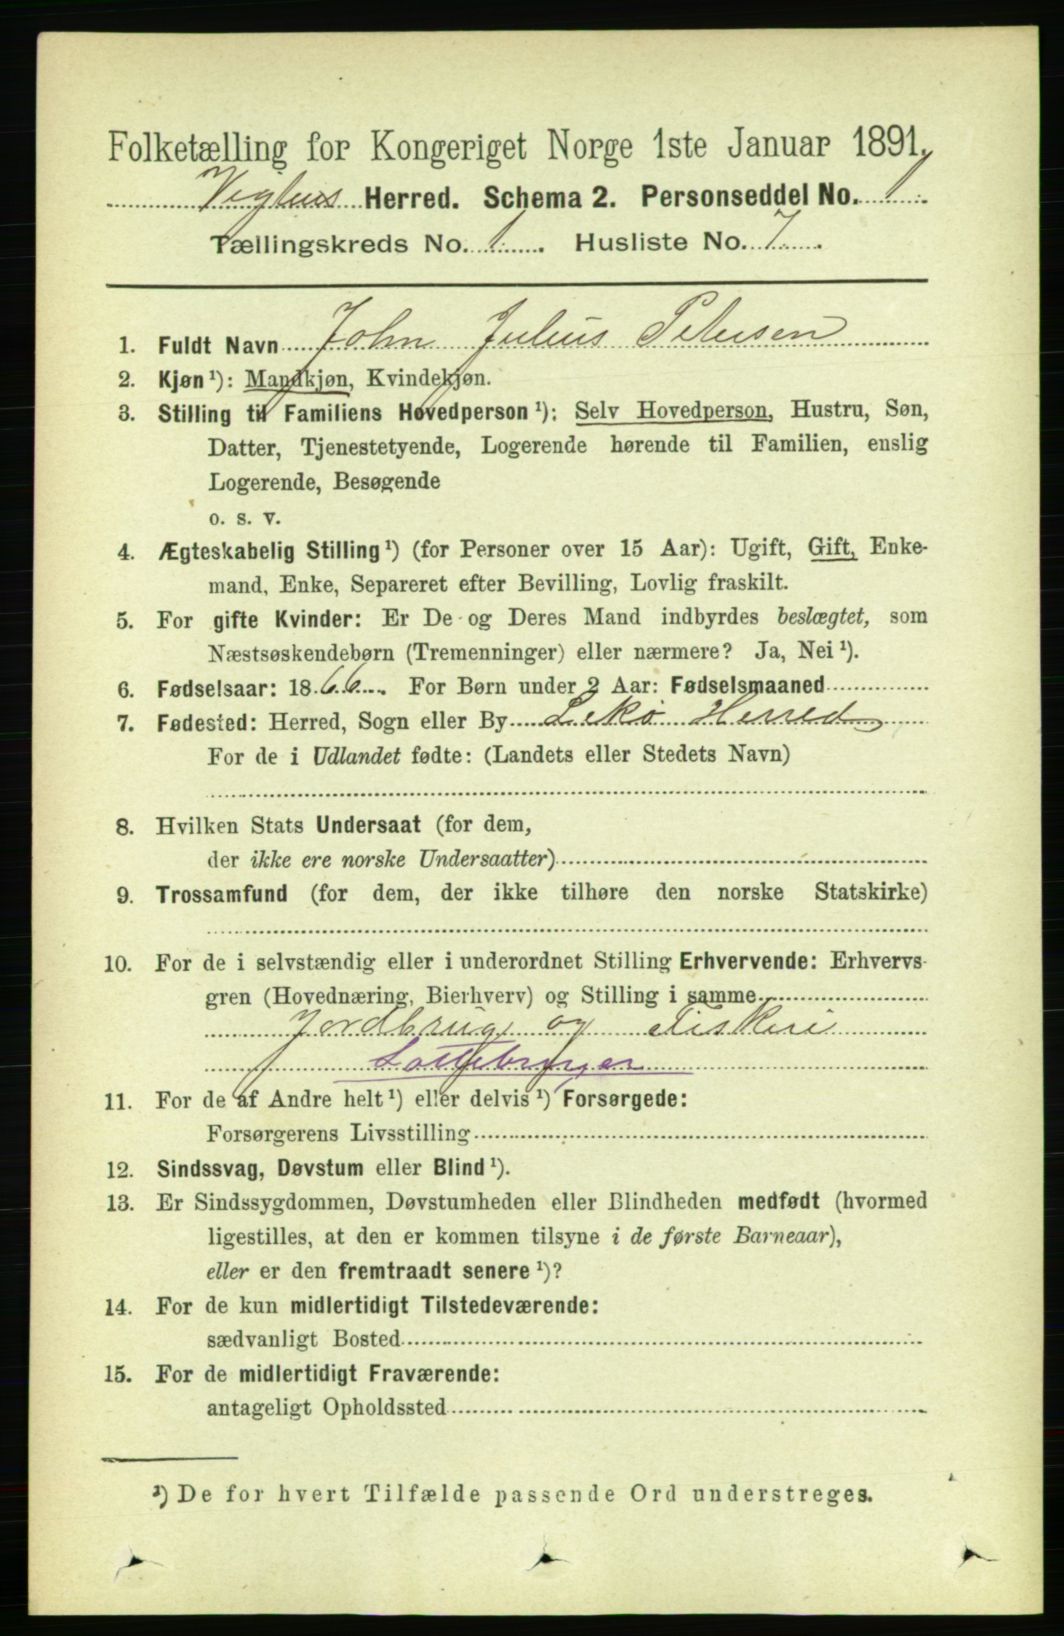 Folketælling for Kongeriget Norge 1ste Januar 1891.
Herred. Schema 2. Personseddel No. 1.
Tællingskreds No. 1. Husliste No. 7.
1. Fuldt Navn John Julius Petersen
2. Kjøn ¹): Mandkjøn, Kvindekjøn.
3. Stilling til Familiens Hovedperson ¹): Selv Hovedperson, Hustru, Søn,
Datter, Tjenestetyende, Logerende hørende til Familien, enslig
Logerende, Besøgende
o. s. v.
4. Ægteskabelig Stilling ¹) (for Personer over 15 Aar): Ugift, Gift, Enke-
mand, Enke, Separeret efter Bevilling, Lovlig fraskilt.
5. For gifte Kvinder: Er De og Deres Mand indbyrdes beslægtet, som
Næstsøskendebørn (Tremenninger) eller nærmere? Ja, Nei ¹).
6. Fødselsaar: 1866. For Børn under 2 Aar: Fødselsmaaned
7. Fødested: Herred, Sogn eller By Lekø Herred
For de i Udlandet fødte: (Landets eller Stedets Navn)
8. Hvilken Stats Undersaat (for dem,
der ikke ere norske Undersaatter)
9. Trossamfund (for dem, der ikke tilhøre den norske Statskirke)
10. For de i selvstændig eller i underordnet Stilling Erhvervende: Erhvervs-
gren (Hovednæring, Bierhverv) og Stilling i samme
Jordbrug og Fiskeri
11. For de af Andre helt ¹) eller delvis ¹) Forsørgede:
Forsørgerens Livsstilling
12. Sindssvag, Døvstum eller Blind ¹).
13. Er Sindssygdommen, Døvstumheden eller Blindheden medfødt (hvormed
ligestilles, at den er kommen tilsyne i de første Barneaar),
eller er den fremtraadt senere ¹)?
14. For de kun midlertidigt Tilstedeværende:
sædvanligt Bosted
15. For de midlertidigt Fraværende:
antageligt Opholdssted
¹) De for hvert Tilfælde passende Ord understreges.